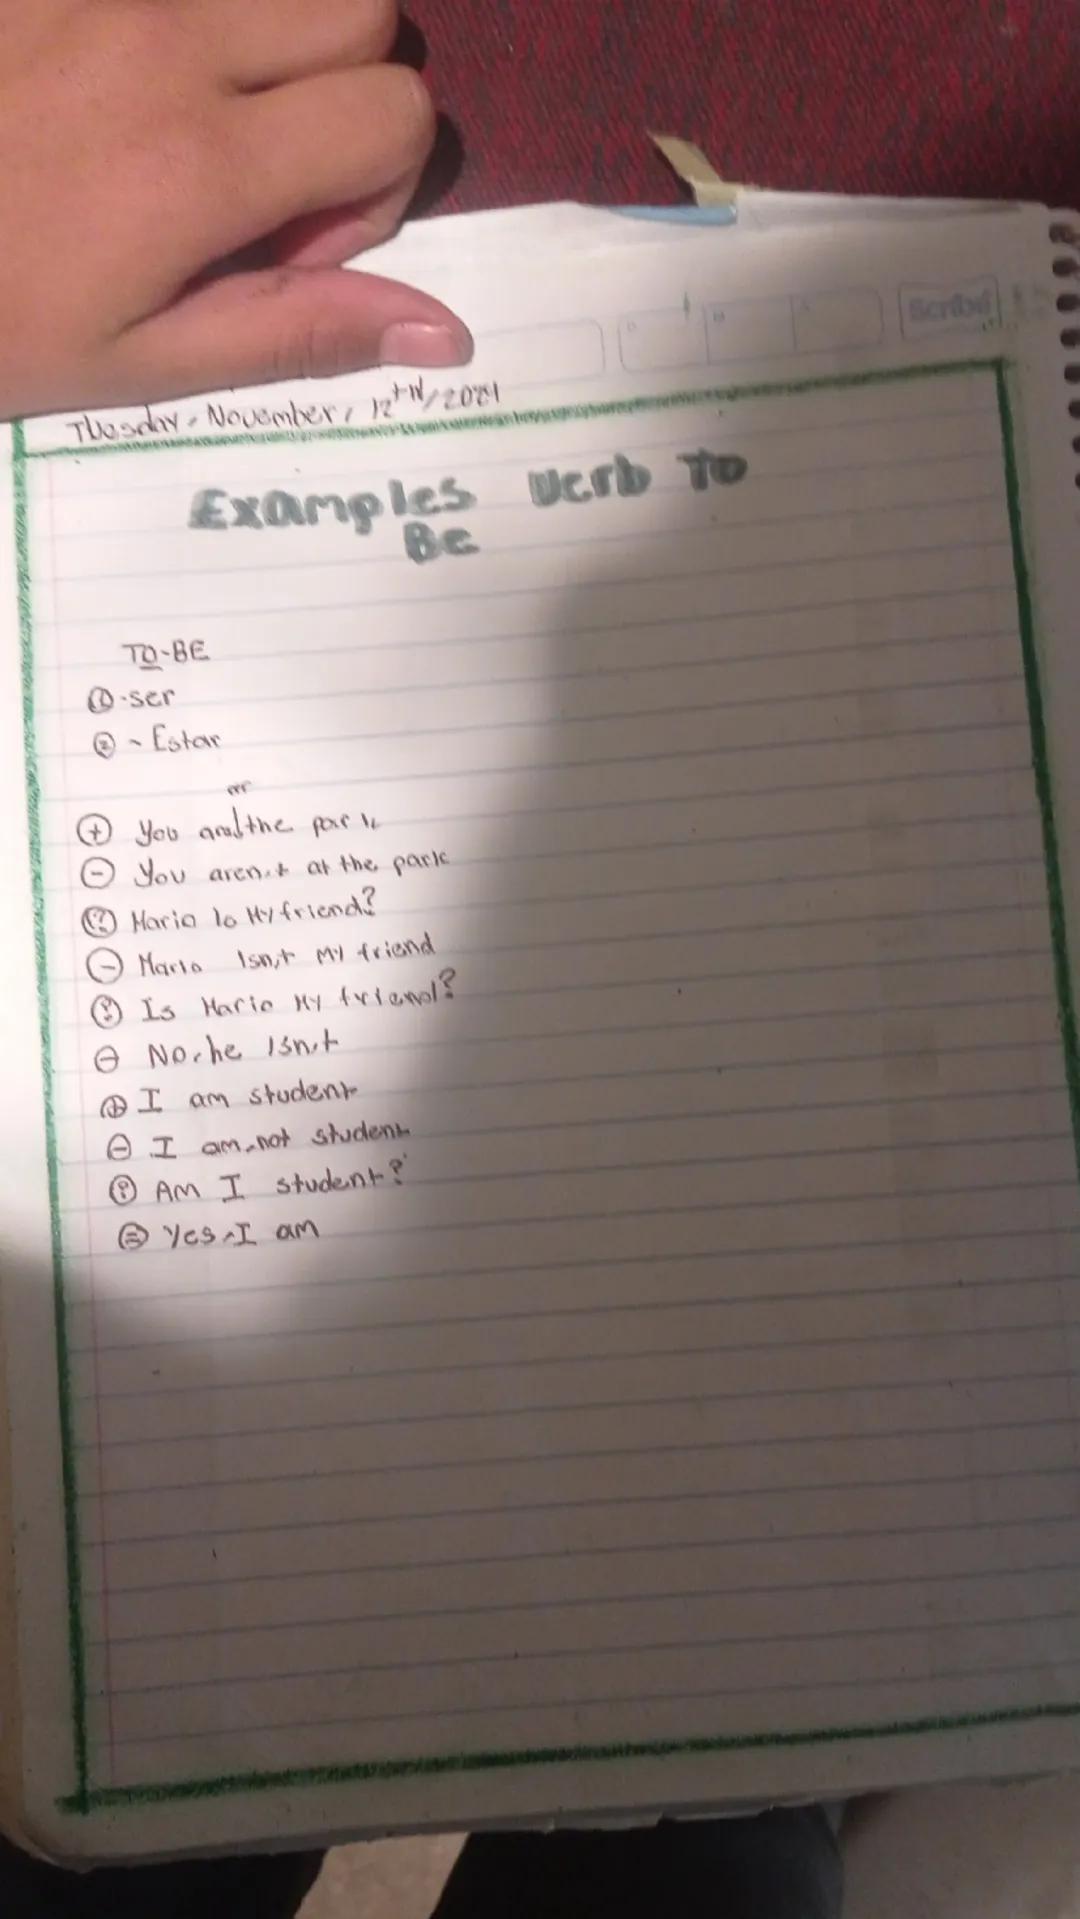 Scribe
Tuesday, November, 12th/2024
Examples Verb To
Be
TO-BE
① -ser
② - Estar
⊕ You the park
⊖ You aren't at the park
? Mario Is My friend?
⊖ Mario Isn't My friend
? Is Mario My friend?
⊖ No, he Isn't
⊕ I am student
⊖ I am not student
? AM I student?
Yes, I am